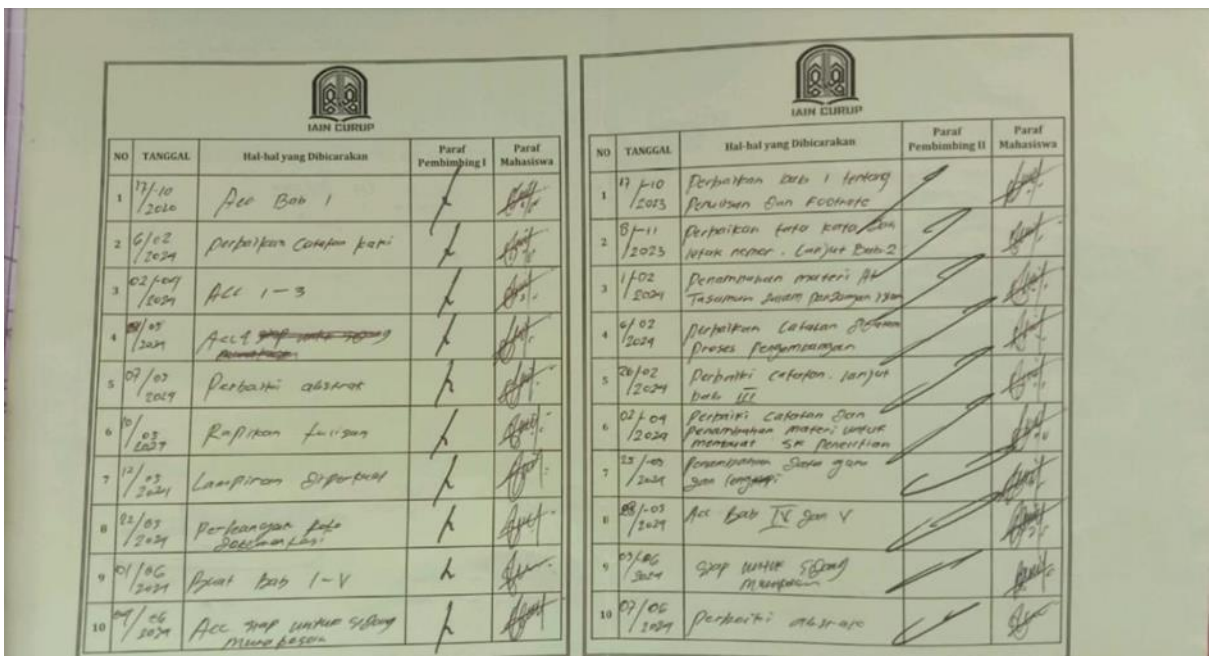 IAIN CURUP
NO TANGGAL Hal-hal yang Dibicarakan Paraf Pembimbing I Paraf Mahasiswa
1 17/-10 2020 Acc Bab 1
2 6/02 2024 perbaikan Catatan kaki
3 02/-04 2024 Acc 1-3
4 /05 2024 Acc
5 07/05 2024 Perbaiki abstrak
6 10/05 Rapikan tulisan
7 12/05 2024 Lampiran diperkuat
8 22/05 2024 foto
Dokumentasi
9 01/06 2024 Buat Bab I-V
10 /06 2024 Acc siap untuk sidang
munaqasah
IAIN CURUP
NO TANGGAL Hal-hal yang Dibicarakan Paraf Pembimbing II Paraf Mahasiswa
1 17/-10 2023 Perbaikan bab 1 tentang
Penulisan dan Footnote
2 8/-11 2023 Perbaikan tata kata dan
letak nomor. Lanjut Bab 2
3 1/-02 2024 Penambahan materi At
Tasamuh dalam
4 6/02 2024 Perbaikan Catatan
Proses Pengembangan
5 26/02 2024 Perbaiki Catatan. lanjut
bab III
6 02/-04 2024 Perbaiki Catatan dan
penambahan materi untuk
membuat SK Penelitian
7 25/-05 2024 Penambahan
dan lengkapi
8 /-05 2024 Acc Bab IV dan V
9 03/-06 2024 siap untuk sidang
10 07/06 2024 Perbaiki abstrak